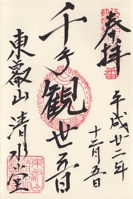 奉拝
平成廿二年
十二月五日
千手観世音
東叡山 清水堂